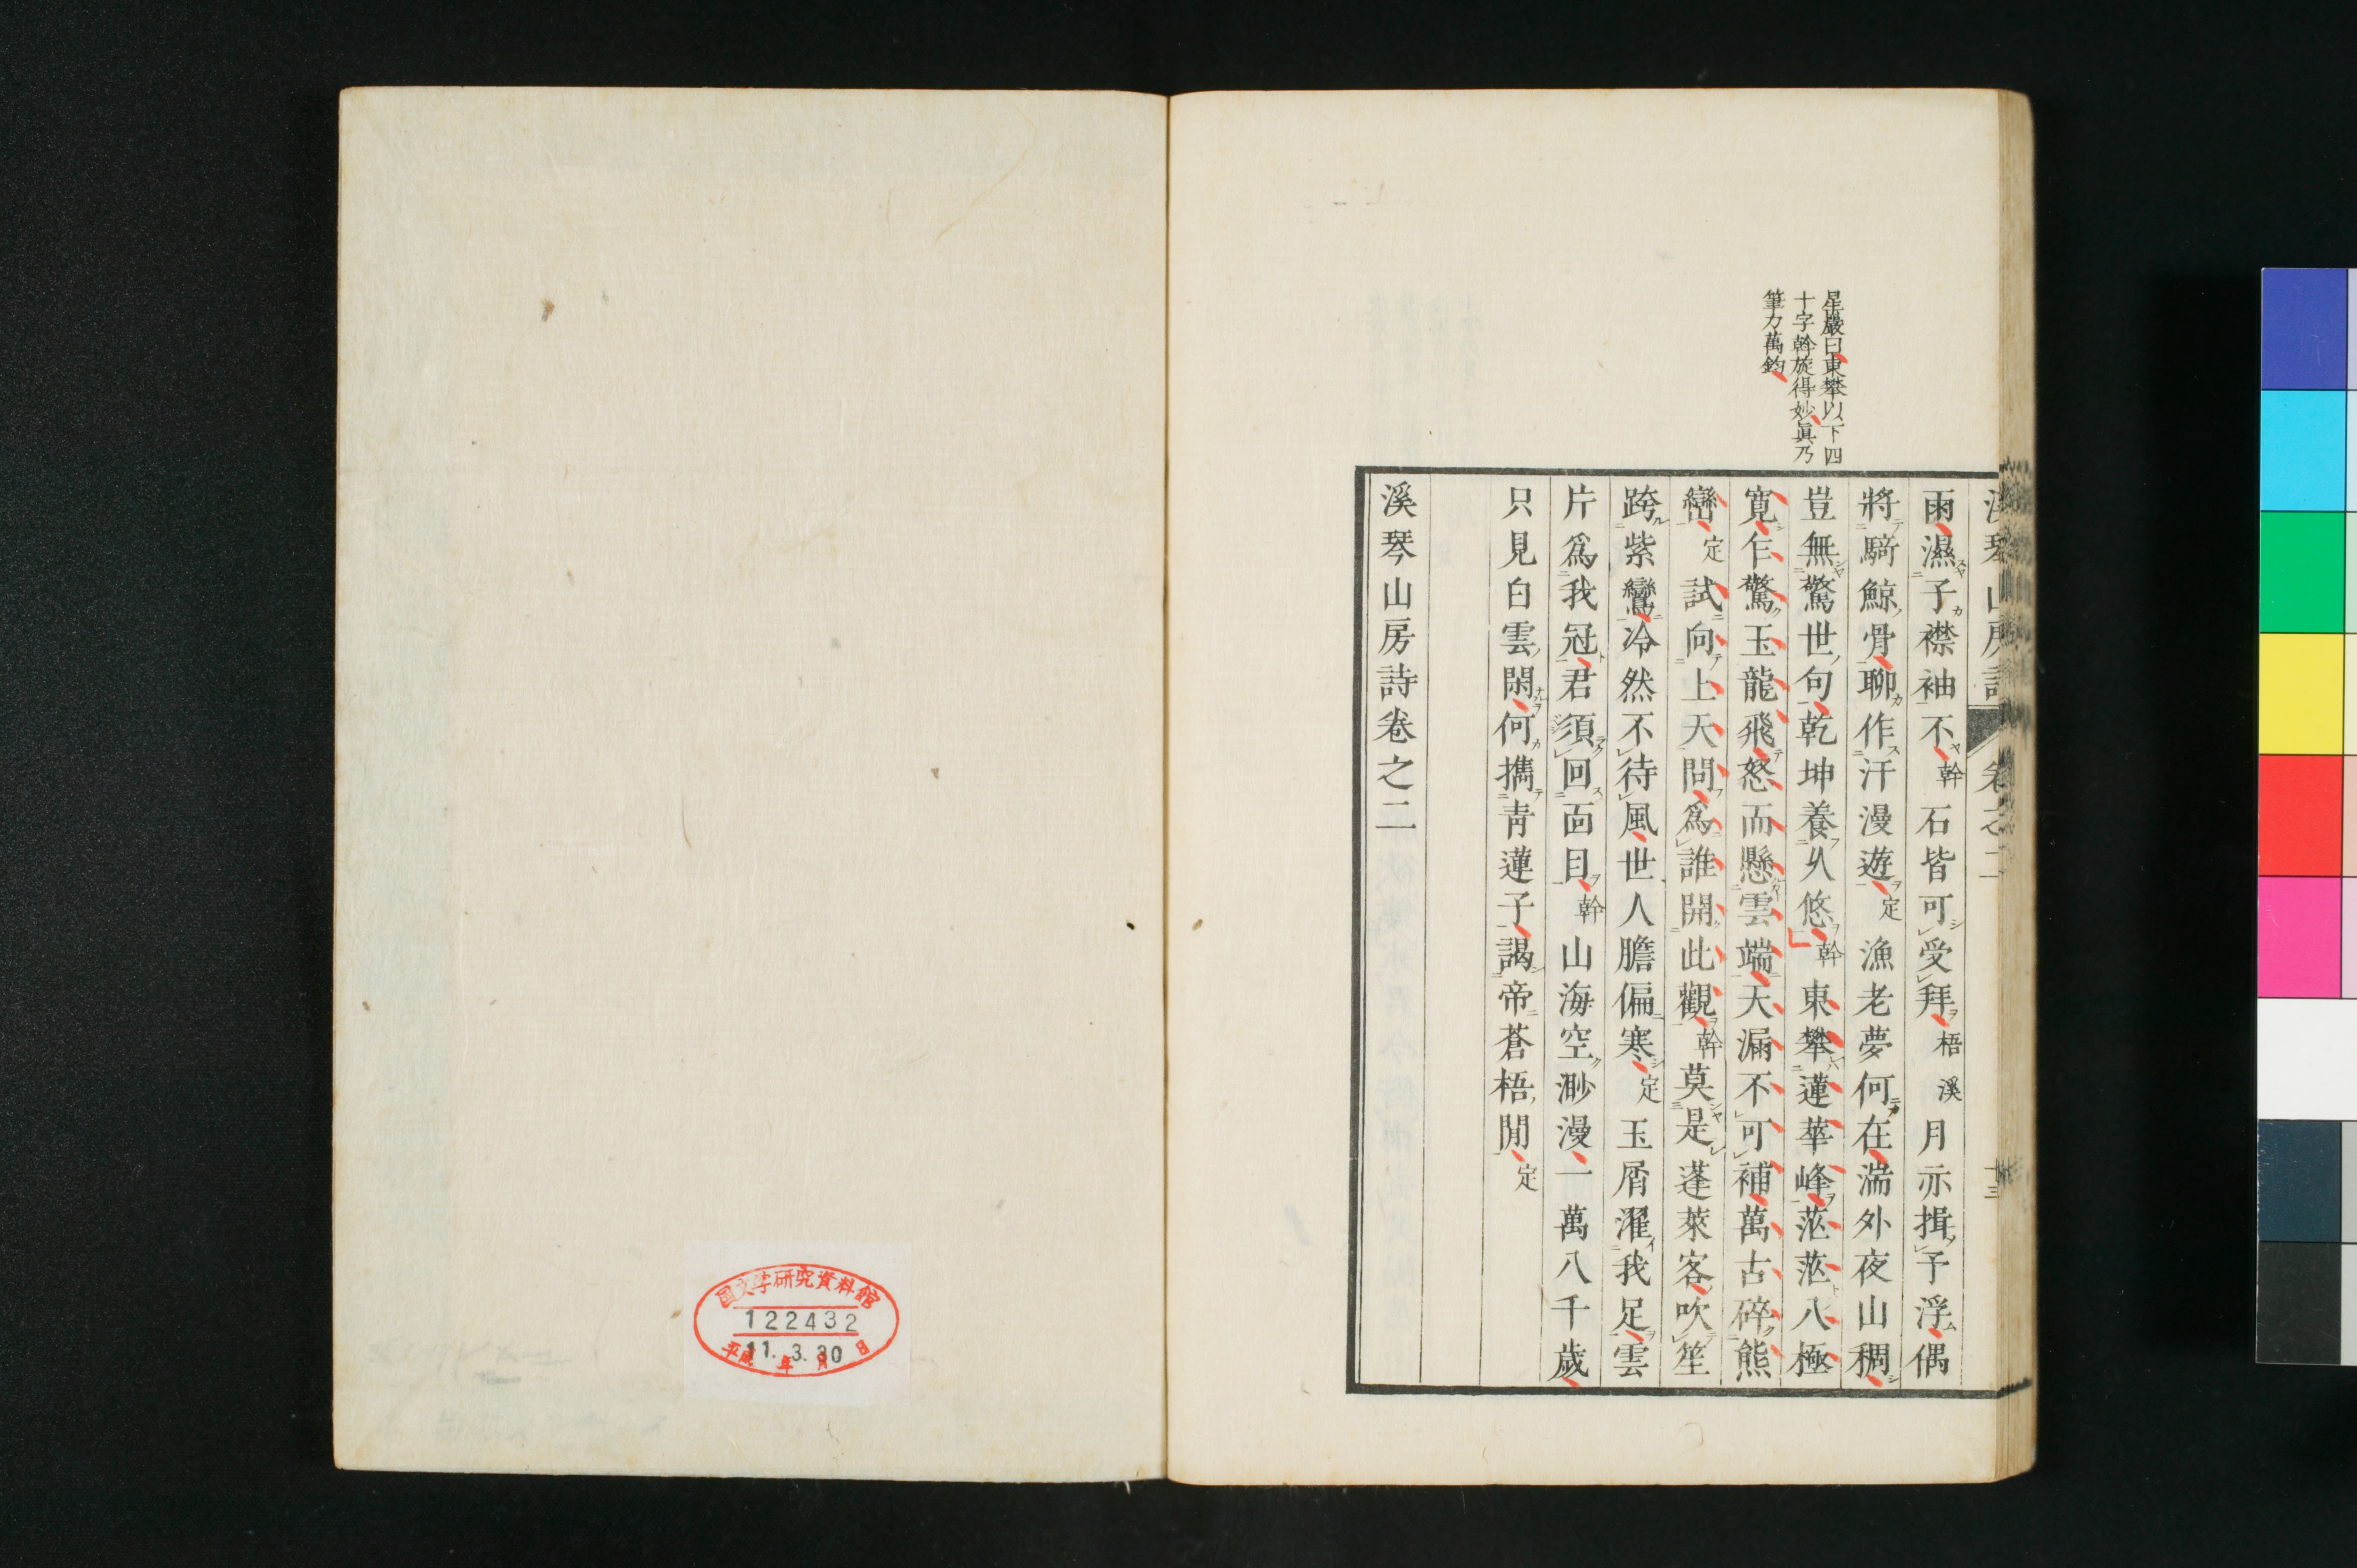 星巖曰東攀以下四
十字斡旋得妙眞乃
筆力萬鈞
雨濕子襟袖不幹石皆可受拜梧溪月亦揖予浮偶
將騎鯨骨聊作汗漫遊定漁老夢何在湍外夜山稠
豈無驚世句乾坤養乆悠幹東攀蓮華峰茫茫八極
寛乍驚玉龍飛怒而懸雲端天漏不可補萬古碎熊
巒定試向上天問爲誰開此觀幹莫是蓬萊客吹笙
跨紫鸞冷然不待風世人膽偏寒定玉屑濯我足雲
片爲我冠君須回面目幹山海空渺漫一萬八千歲
只見白雲閑何携靑蓮子謁帝蒼梧閒定
溪琴山房詩卷之二
国文学研究資料館
122432
平成11年3月30日